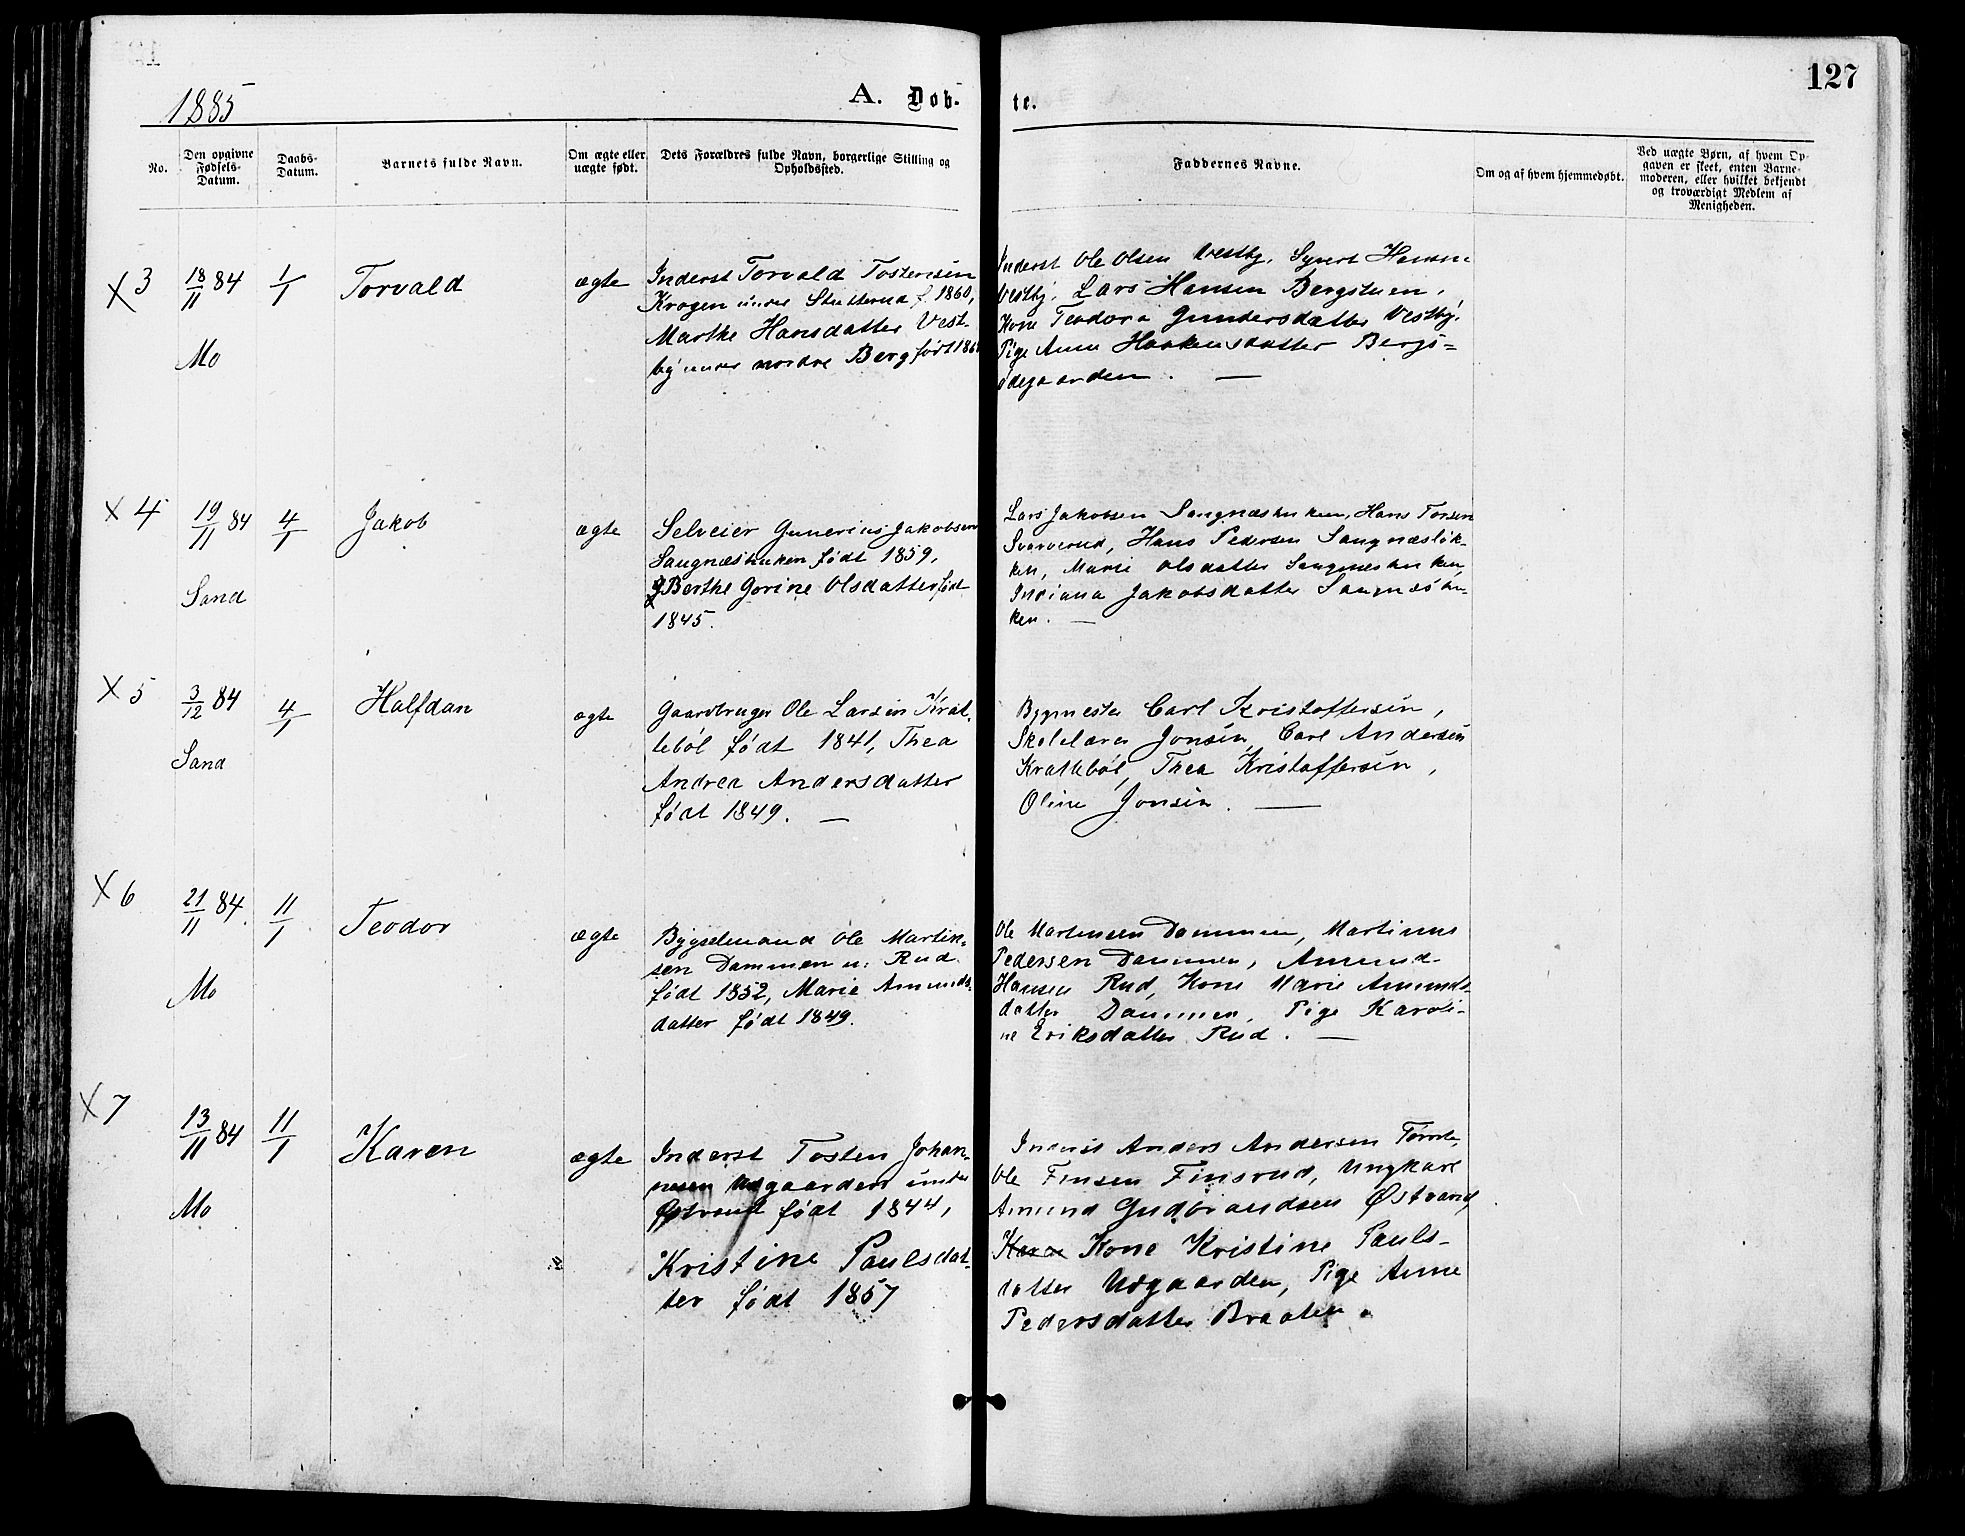 127
1885
A. Døb-
te.
No.
Den opgivne
Fødsels-
Datum.
Daabs-
Datum.
Barnets fulde Navn.
Om ægte eller
uægte født.
Dets Forældres fulde Navn, borgerlige Stilling og
Opholdssted.
Faddernes Navne.
Om og af hvem hjemmedøbt.
Ved uægte Børn, af hvem Op-
gaven er skeet, enten Barne-
moderen, eller hvilket bekjendt
og troværdigt Medlem af
Menigheden.
X 3
18/11 84
Mo
1/1
Torvald
ægte
Inderst Torvald Tostensen
Krogen under f. 1860,
Marthe Hansdatter Vest-
by under nordre Berg født
Inderst Ole Olsen Vestby, Syvert Hansen
Vestby, Lars Hansen Bergstuen,
Kone Teodora Gundersdatter Vestby,
Pige Anne Haakensdatter Bergs=
ødegaarden. —
X 4
19/11 84
Sand
4/1
Jakob
ægte
Selveier Gunerius Jakobsen
Saugnæshuken født 1859,
Berthe Gorine Olsdatter født
1845.
Lars Jakobsen Saugnæshuken, Hans
Hans Pedersen Saugnæsløk-
ken, Marie Olsdatter Saugnæshuken
Indiana Jakobsdatter
ken. —
X 5
3/12 84
Sand
4/1
Halfdan
ægte
Gaardbruger Ole Larsen Krat-
tebøl født 1841, Thea
Andrea Andersdatter
født 1849. —
Bygmester Carl Kristoffersen,
Skolelærer Jonsen, Carl Andersen
Krattebøl, Thea Kristoffersen,
Oline Jonsen. —
X 6
21/11 84
Mo
11/1
Teodor
ægte
Bygselmand Ole Martin-
sen Dammen u. Rud
født 1852, Marie Amunds-
datter født 1849.
Ole Martinsen Dammen, Martinus
Pedersen Dammen, Amund
Hansen Rud, Kone Marie Amunds-
datter Dammen, Pige Karoli-
ne Eriksdatter Rud. —
X 7
13/11 84
Mo
11/1
Karen
ægte
Inderst Tosten Johan-
nesen Udgaarden under
født 1844,
Kristine Paulsdat-
ter født 1857
Inderst Anders Andersen
Ole Finsen Finsrud, Ungkarl
Amund Gudbrandsen
Kone Kristine Pauls-
datter Udgaarden, Pige Anne
Pedersdatter Braaten.